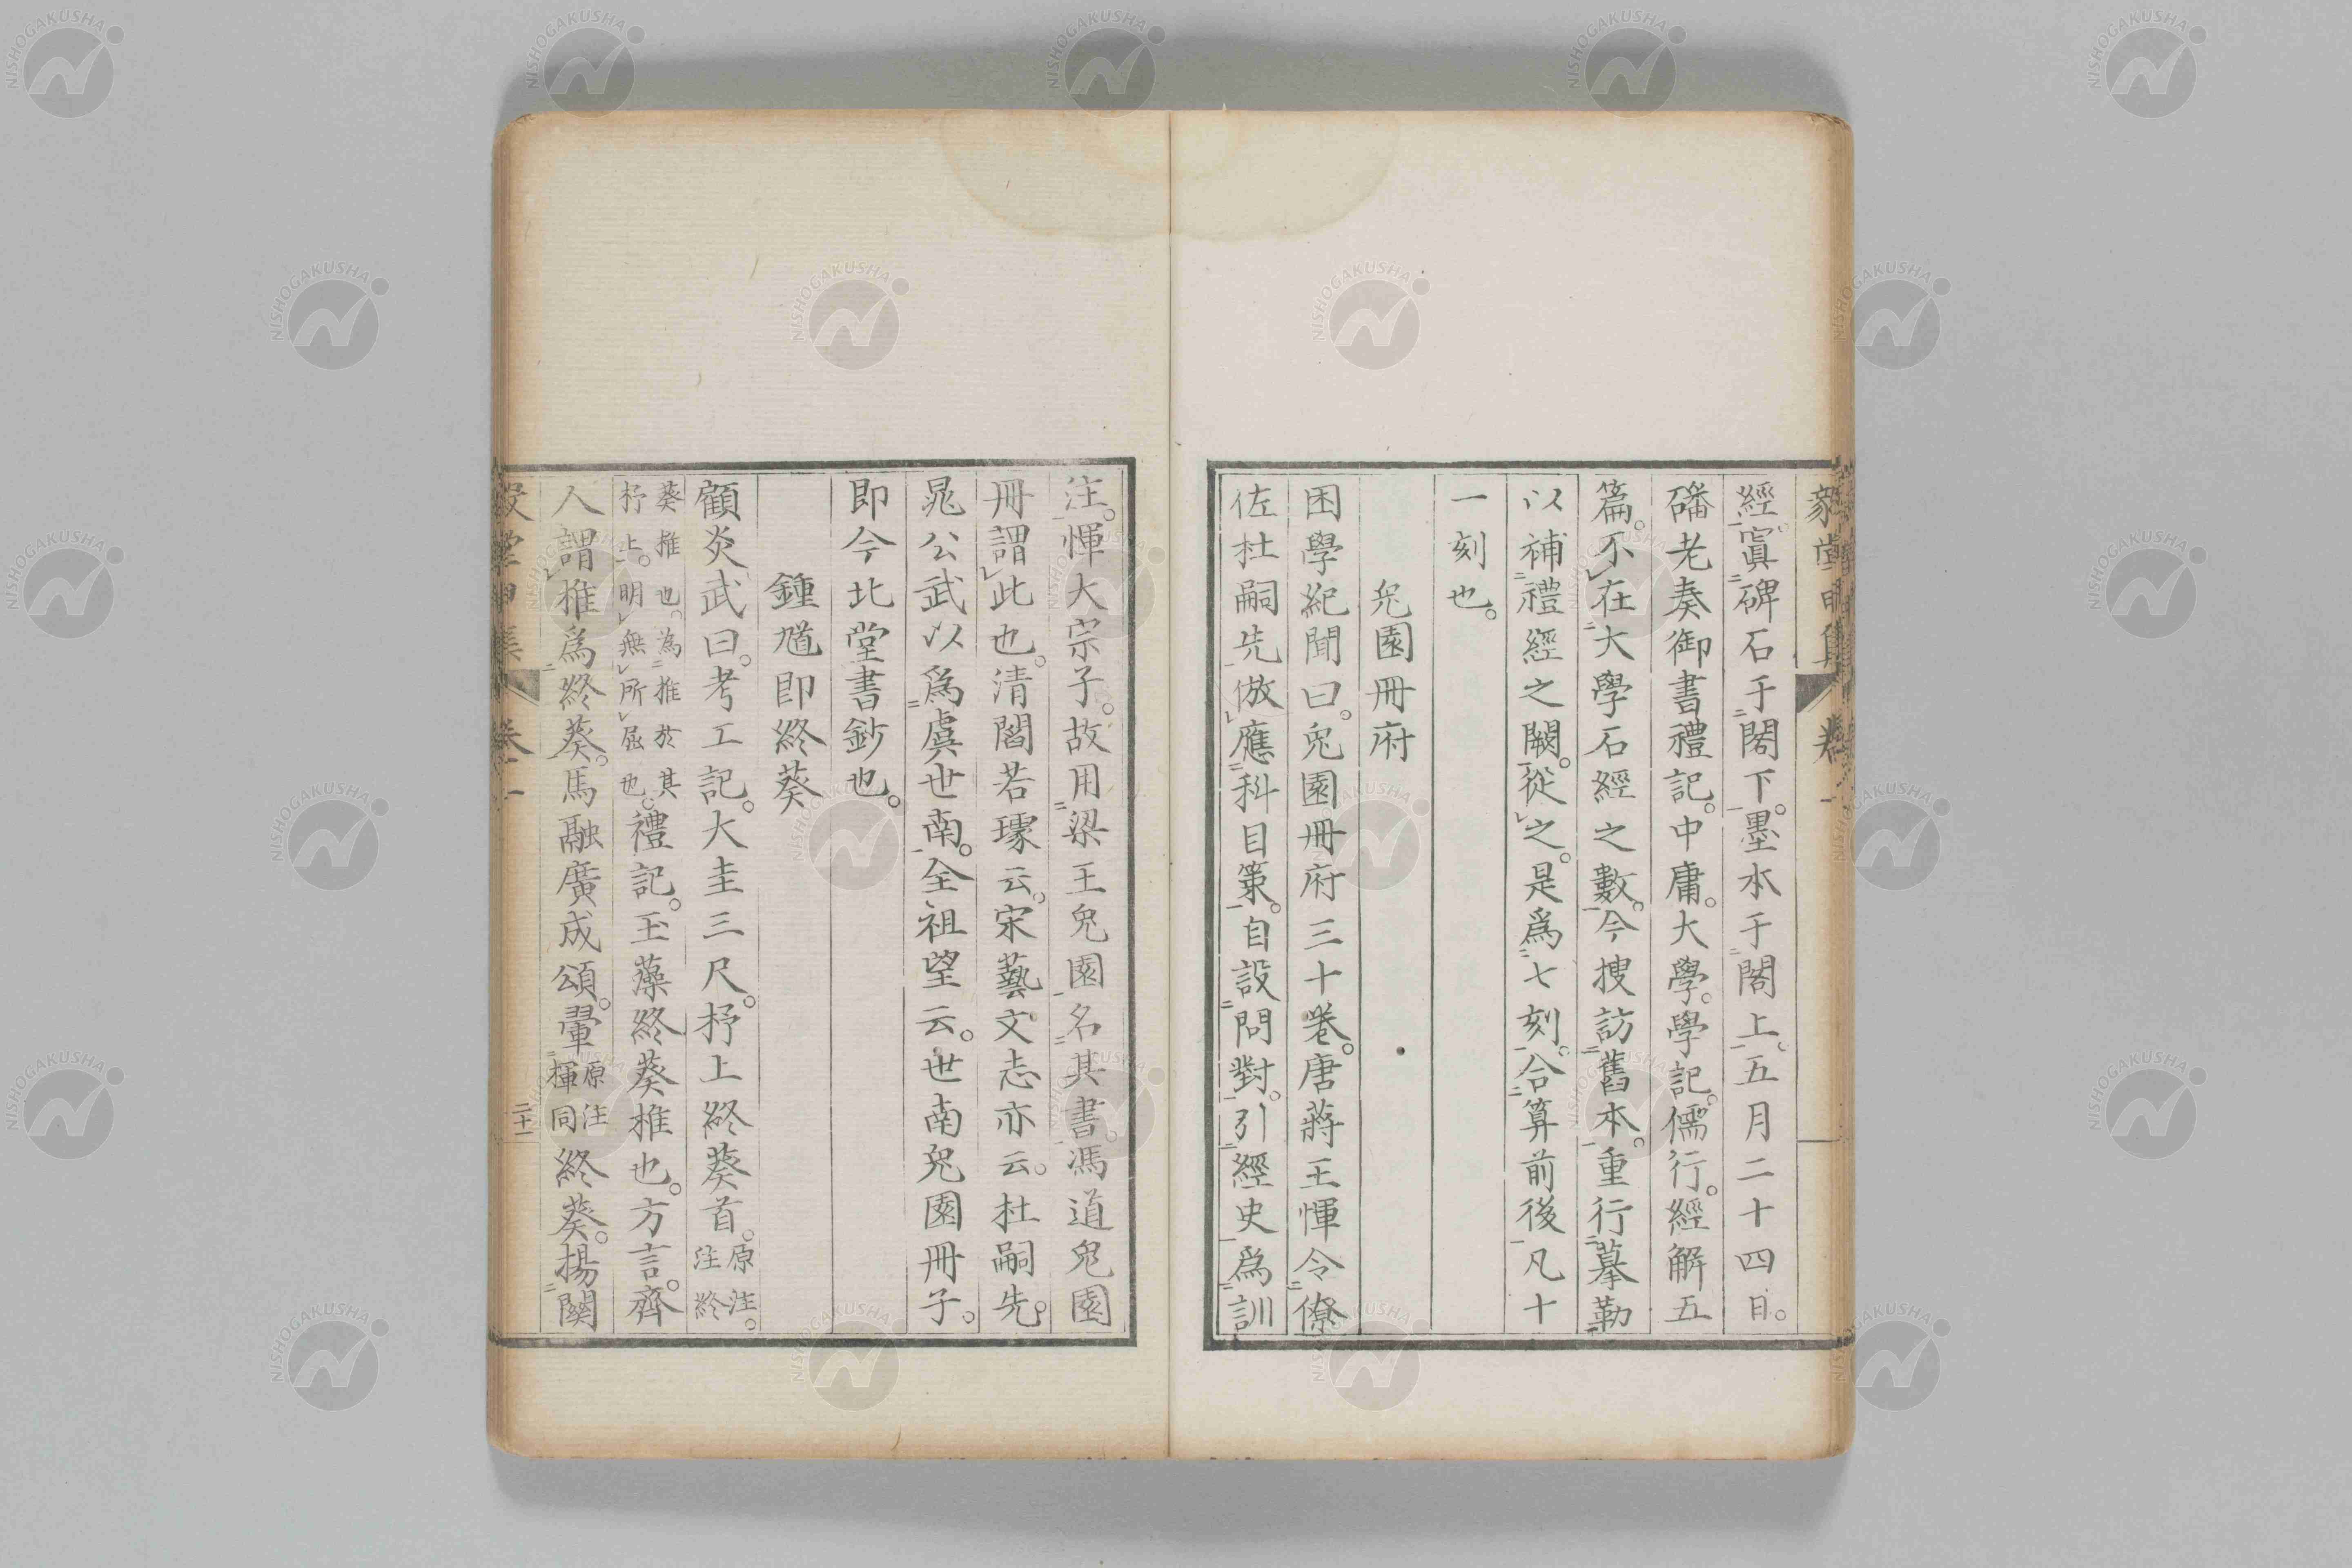 經。寘碑石于閣下。墨本于閣上。五月二十四日。
磻老奏御書禮記。中庸。大學。學記。儒行。經解五
篇。不在大學石經之數。今搜訪舊本。重行摹勒
以補禮經之闕。從之。是爲七刻。合算前後凡十
一刻也。
兔園冊府
困學紀聞曰。兔園冊府三十卷。唐蔣王惲令僚
佐杜嗣先倣應科目策。自設問對。引經史爲訓
注。惲大宗子。故用梁王兔園名其書。馮道兔園
冊謂此也。清閻若璩云。宋藝文志亦云。杜嗣先。
晁公武以爲虞世南。全祖望云。世南兔園冊子。
即今北堂書鈔也。
鍾馗即終葵
顧炎武曰。考工記。大圭三尺。杼上終葵首。原注。終
葵推也。為推於其杼上。明無所屈也。禮記。玉藻終葵椎也。方言。齊
人謂椎爲終葵。馬融廣成頌。翬原注揮同終葵。揚關
卷一
二十一
NISHOGAKUSHA